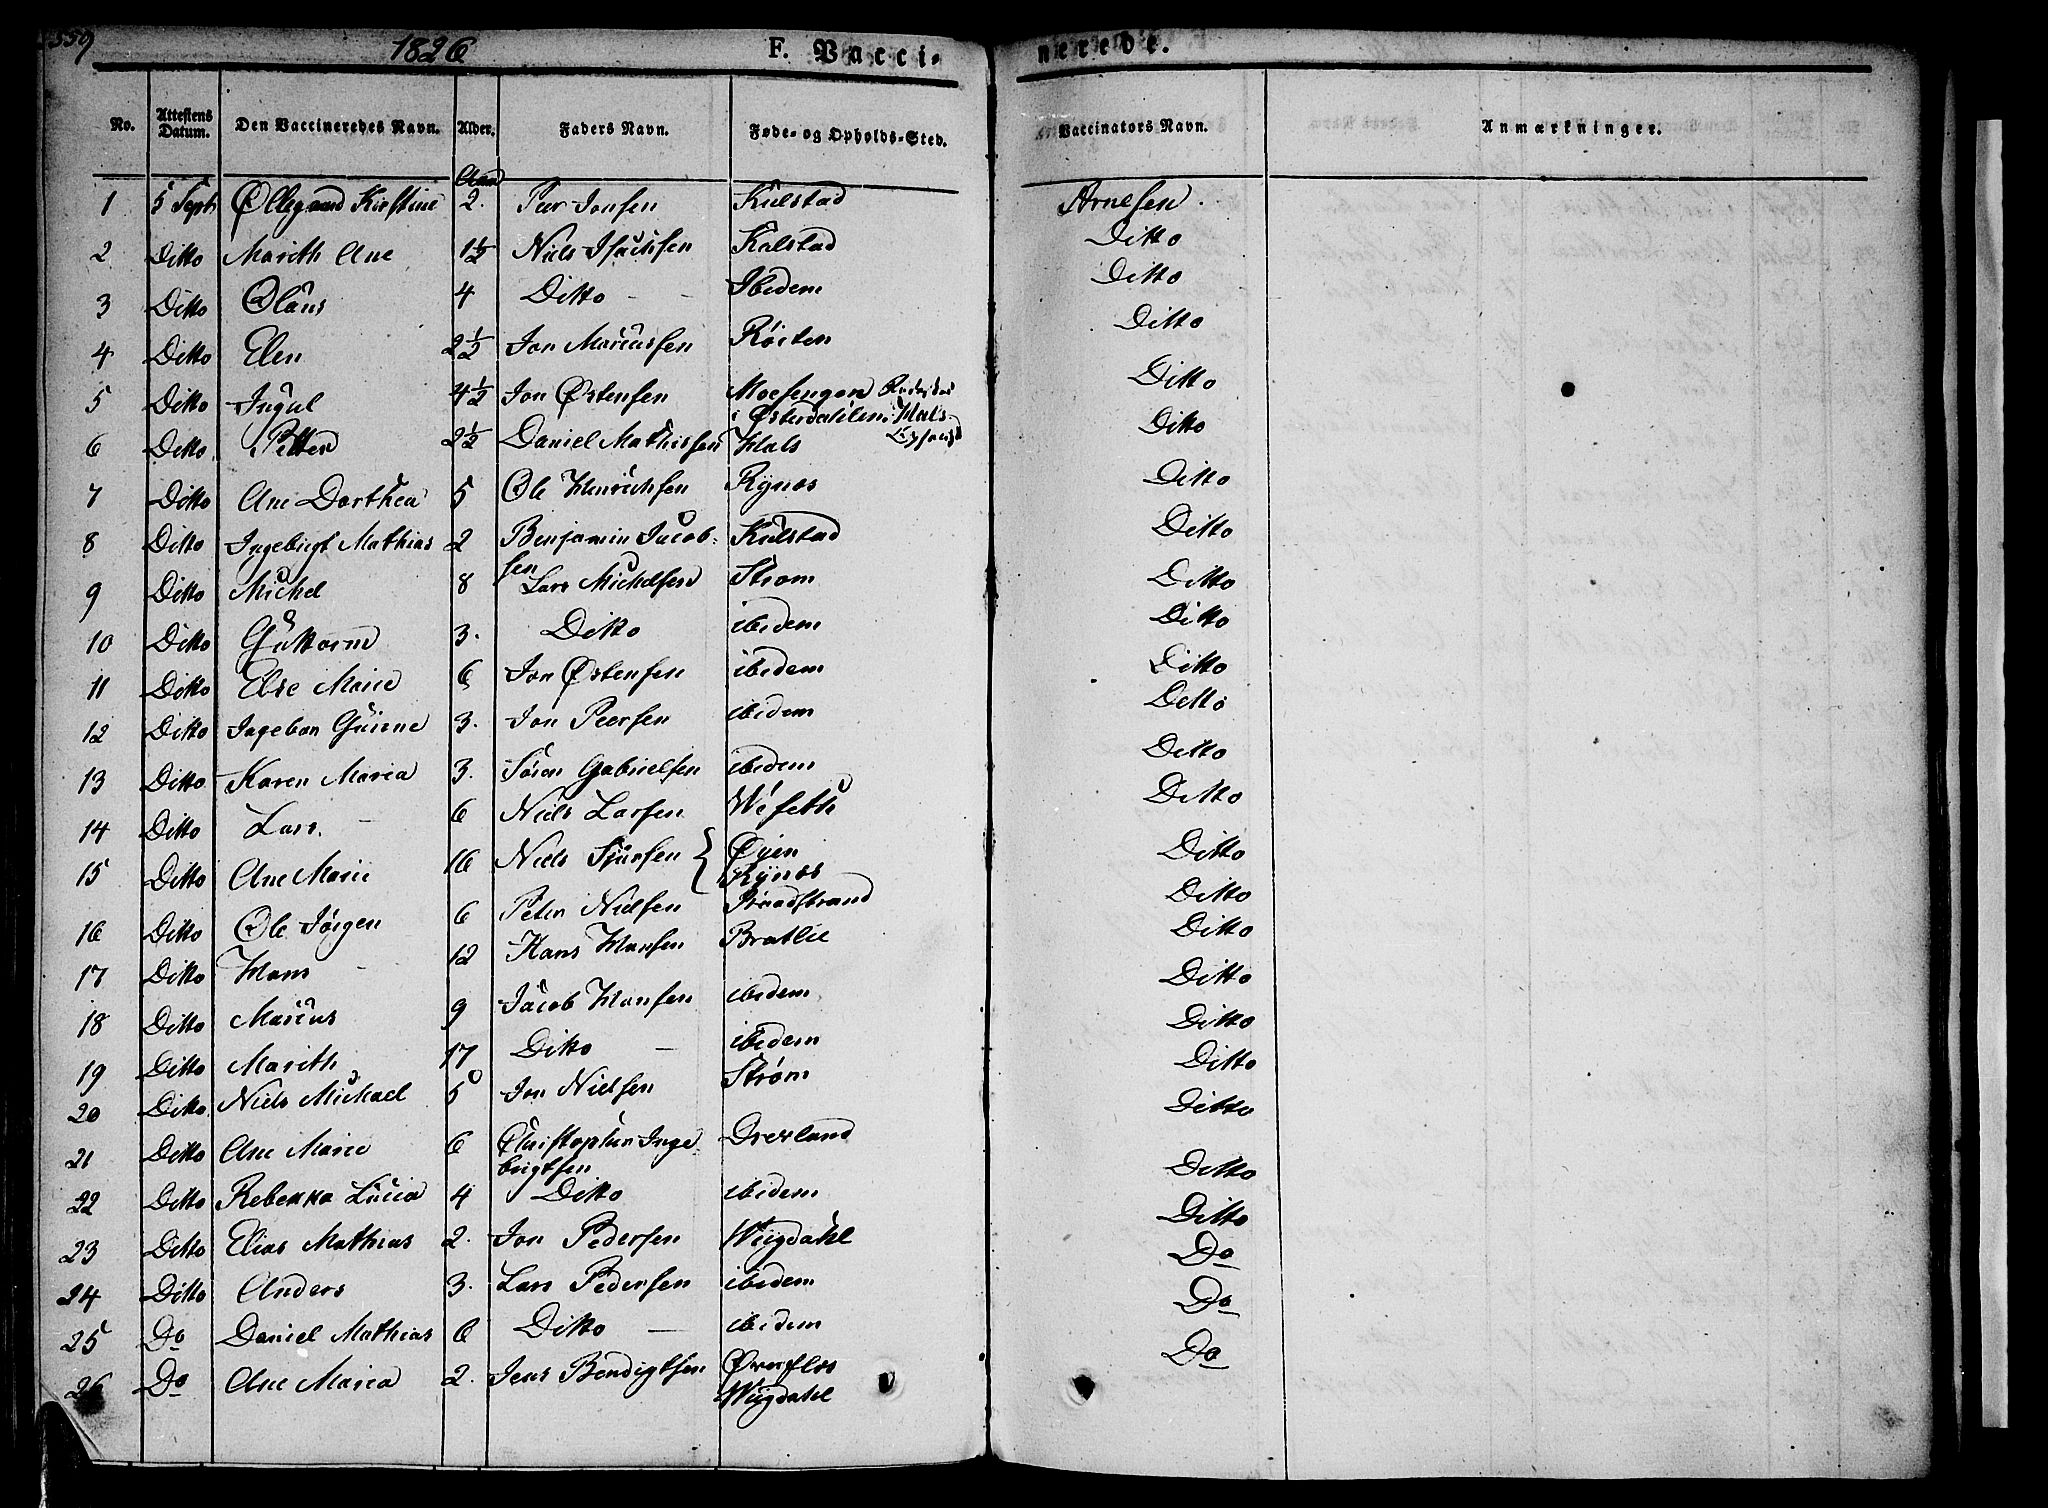 559
1826 F. Vaccinerede.
No. Attestens Datum. Den Vaccineredes Navn. Alder. Faders Navn. Føde- og Opholds-Sted. Vaccinators Navn. Anmærkninger.
Aar
1 5 Sept Øllegaard Kirstine 2. Peer Jonsen Kulstad Arnesen.
2 Ditto Marith Ane 1½ Niels Isachsen Kalstad Ditto
3 Ditto Olaus 4 Ditto - - Ibidem Ditto
4 Ditto Elen 2½ Jon Marcussen Røsten Ditto
5 Ditto Ingul 4½ Jon Østensen Moesengen Ditto
i Østerdahlen Hals
6 Ditto Petter 2½ Daniel Mathissen Hals Ditto
7 Ditto Ane Dorthea 5 Ole Henrichsen Rynes Ditto
8 Ditto Ingebrigt Mathias 2 Benjamin Jacob- Kulstad Ditto
sen
9 Ditto Michel 8 Lars Michelsen Strøm Ditto
10 Ditto Guttorm 3. Ditto ibidem Ditto
11 Ditto Else Marie 6 Jon Østensen ibidem Ditto
12 Ditto Ingebor Gurine 3. Jon Peersen ibidem Ditto
13 Ditto Karen Maria 3. Sören Gabrielsen ibidem Ditto
14 Ditto Lars. - 6 Niels Larsen Wefseth Ditto
15 Ditto Ane Marie 16 Niels Sjursen { Øyen Ditto
Rynes
16 Ditto Ole Jörgen 6 Peter Nielsen Ditto
17 Ditto Hans - 12 Hans Hansen Bratlie Ditto
18 Ditto Marcus 9 Jacob Hansen ibidem Ditto
19 Ditto Marith 17 Ditto - ibidem Ditto
20 Ditto Niels Michael 5 Jon Nielsen Strøm Ditto
21 Ditto Ane Marie 6 Christopher Inge- Drevland Ditto
brigtsen
22 Ditto Rebekka Lucia 4 Ditto ibidem Ditto
23 Ditto Elias Mathias 2. Jon Pedersen Wiigdahl Ditto
24 Ditto Anders 3. Lars Pedersen ibidem Do
25 Do Daniel Mathias 6 Ditto - ibidem Do
26 Do Ane Maria 2. Jens Bendigtsen Ørnflos Do
Wiigdahl